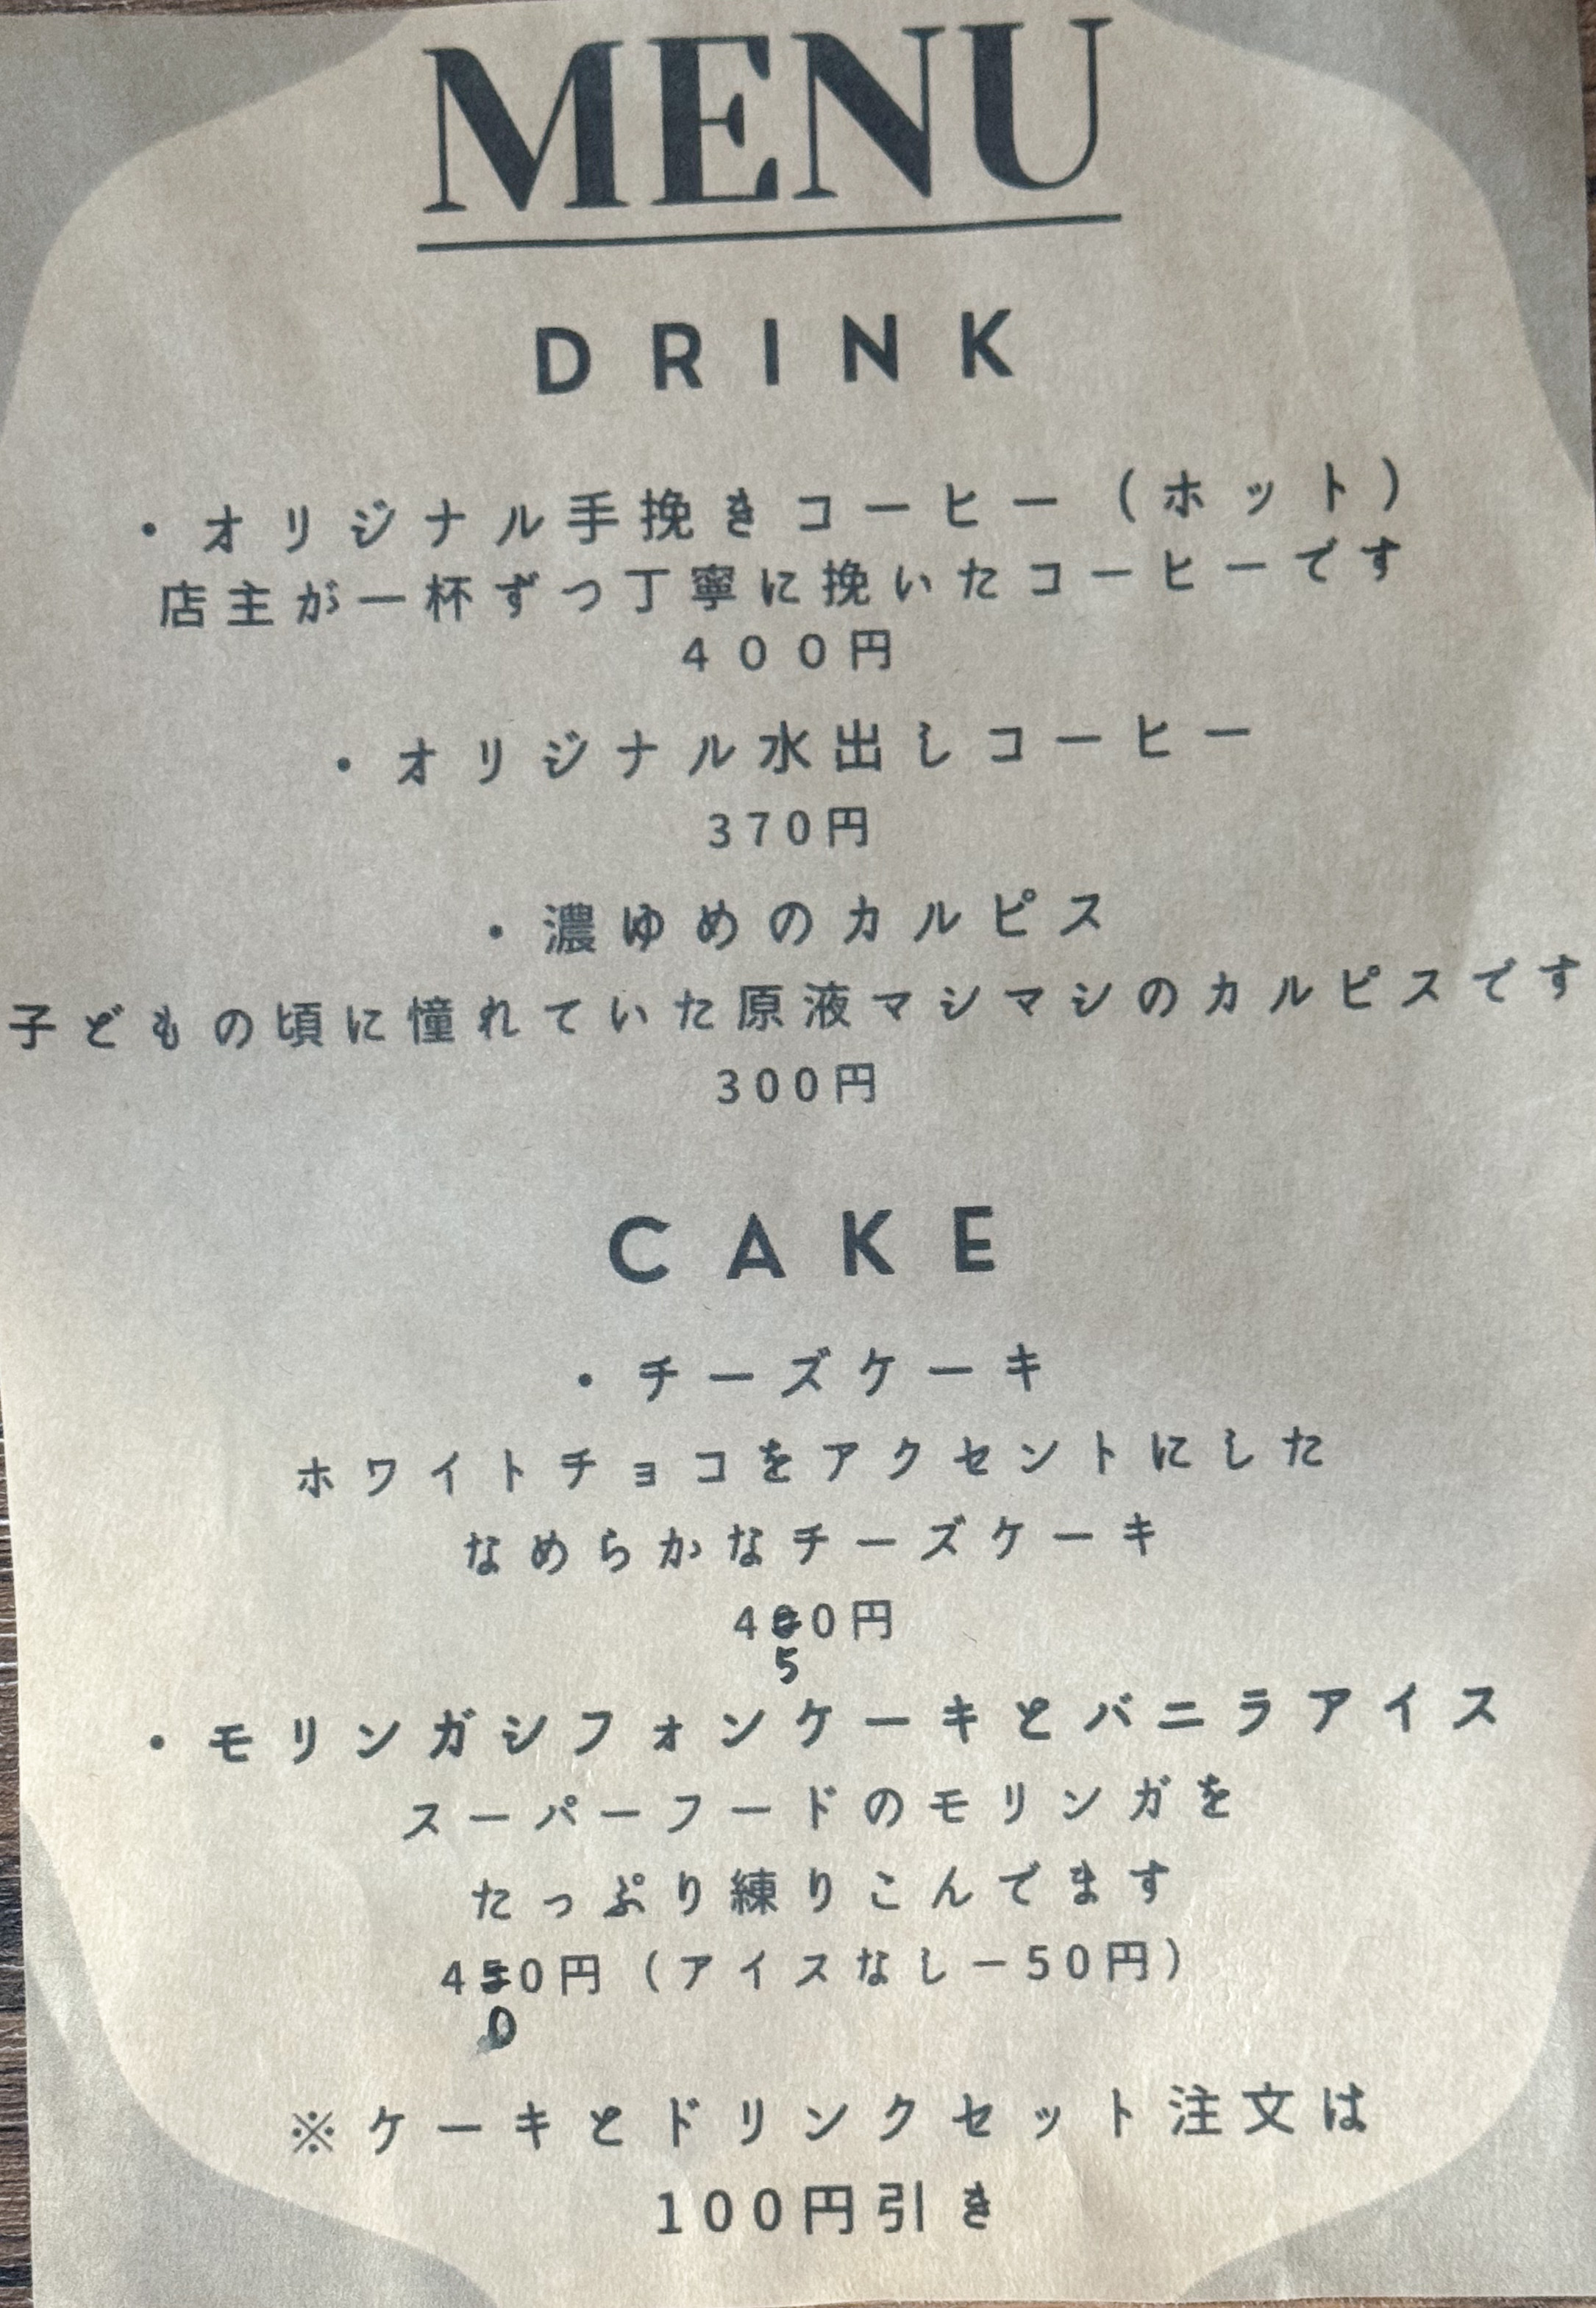 MENU
DRINK
・オリジナル手挽きコーヒー(ホット)
店主が一杯ずつ丁寧に挽いたコーヒーです
400円
・オリジナル水出しコーヒー
370円
・濃ゆめのカルピス
子どもの頃に憧れていた原液マシマシのカルピスです
300円
CAKE
・チーズケーキ
ホワイトチョコをアクセントにした
なめらかなチーズケーキ
450円
・モリンガシフォンケーキとバニラアイス
スーパーフードのモリンガを
たっぷり練りこんでます
400円(アイスなしー50円)
※ケーキとドリンクセット注文は
100円引き